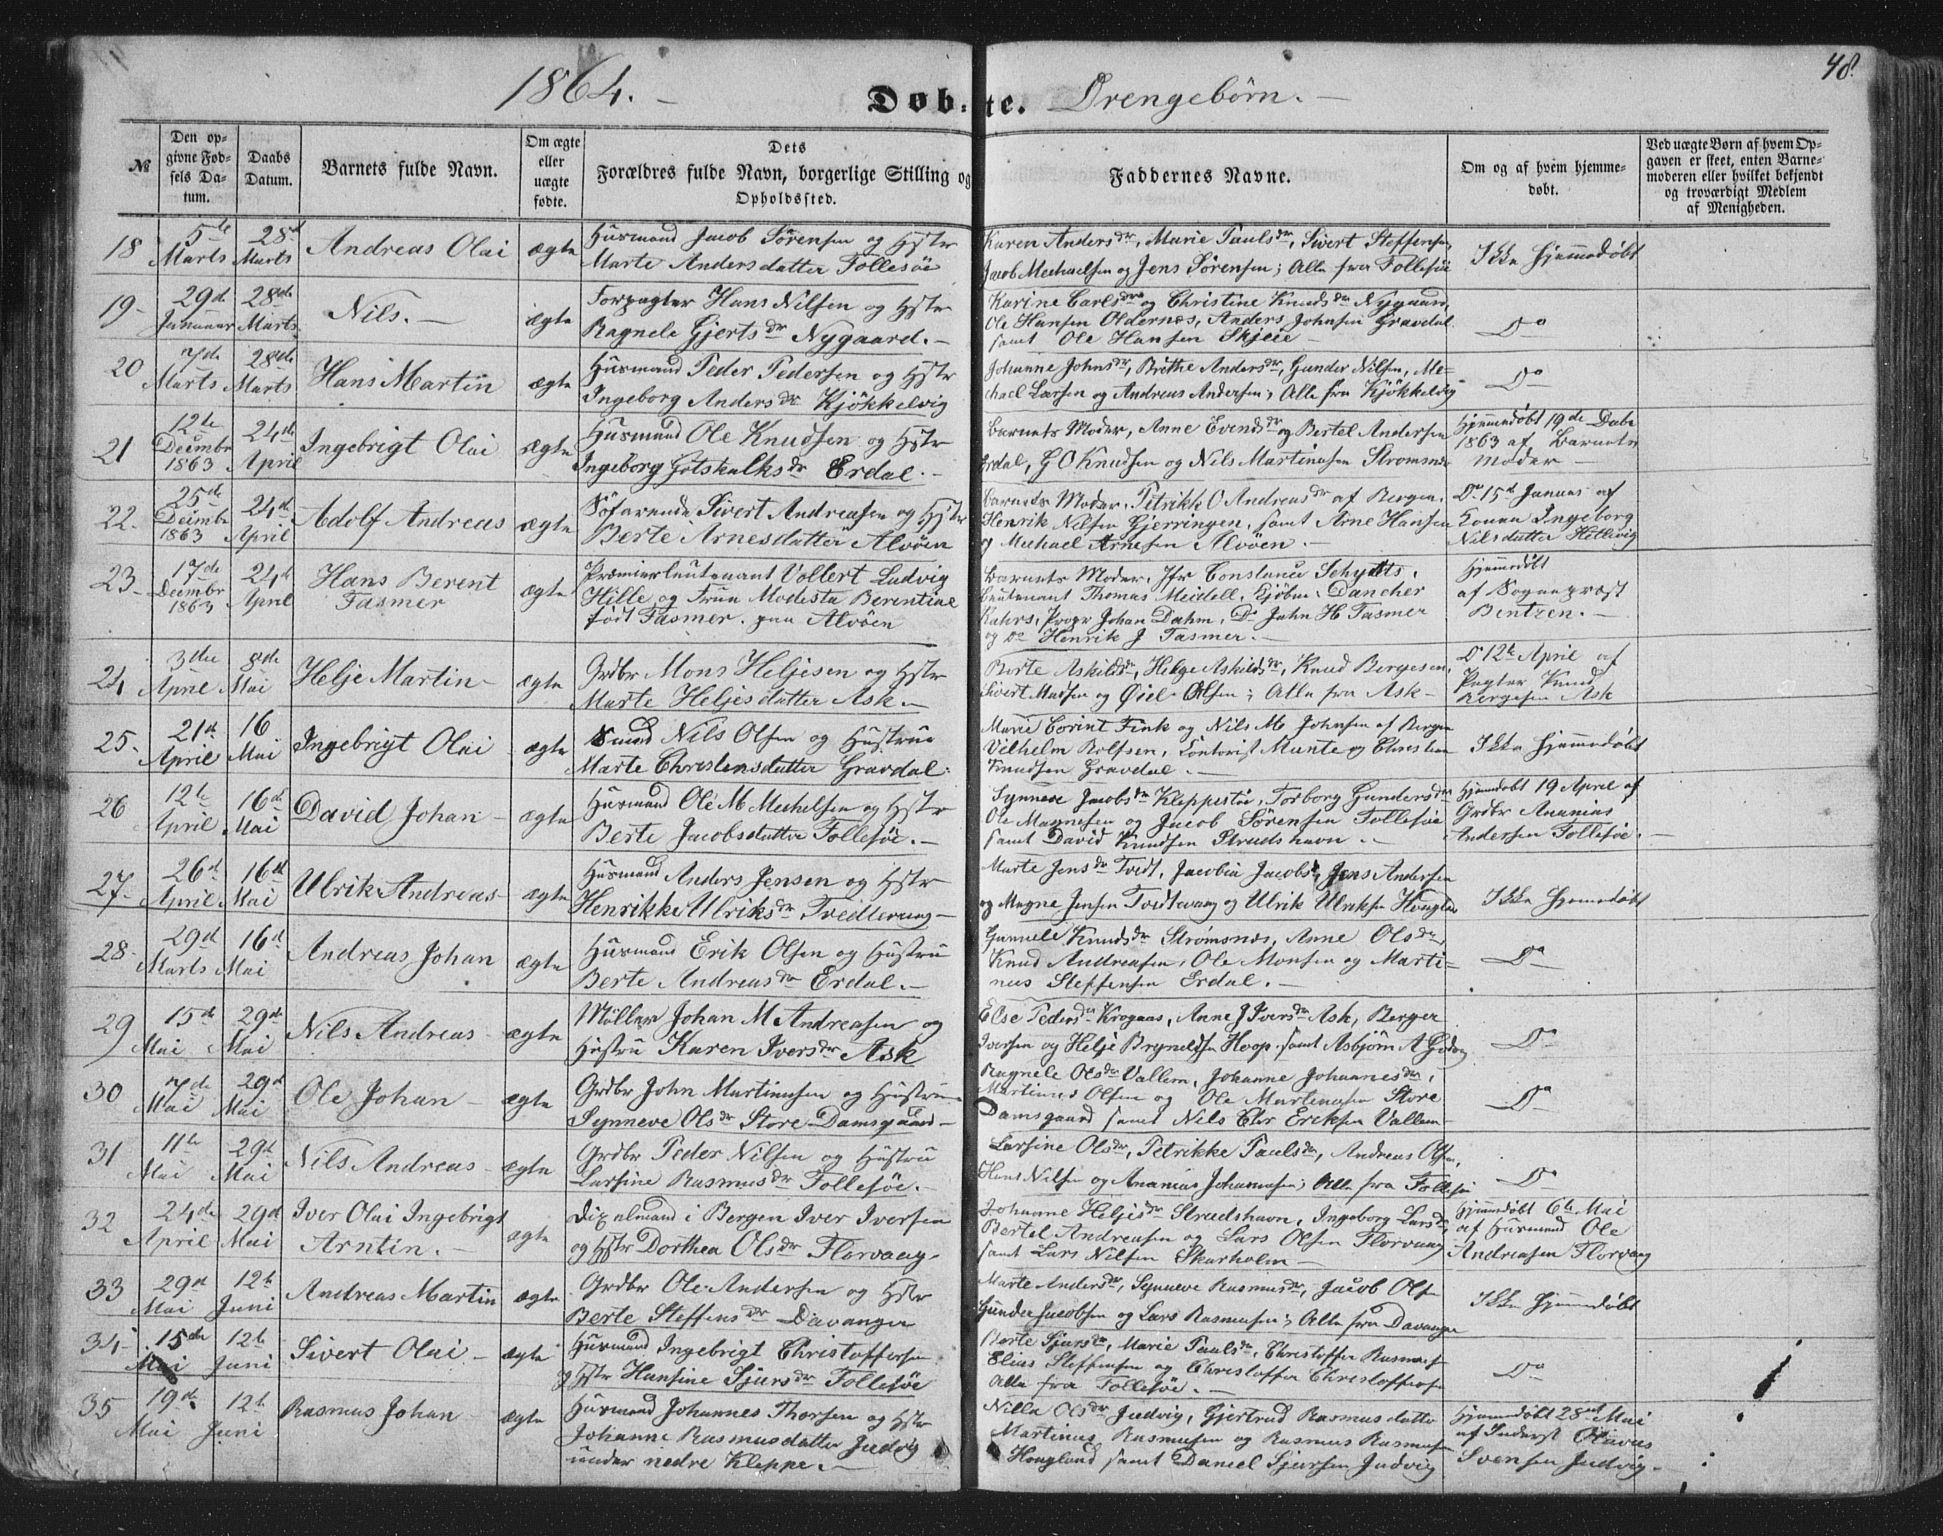 48.
1864. – Døbte. Drengebørn. –
№
Den opgivne Fødsels Datum.
Daabs Datum.
Barnets fulde Navn.
Om ægte eller uægte fødte.
Dets Forældres fulde Navn, borgerlige Stilling og Opholdssted.
Faddernes Navne.
Om og af hvem hjemmedøbt.
Ved uægte Børn af hvem Opgaven er skeet, enten Barnemoderen eller hvilket bekjendt og troværdigt Medlem af Menigheden.
18 5te Marts 28d Marts Andreas Olai ægte
Husmand Jacob Sørensen og Hstr
Marte Andersdatter Follesøe
Karen Andersdr, Marie Paulsdr, Sivert Steffensen,
Jacob Mechaelsen og Jens Sørensen; Alle fra Follesøe
Ikke Hjemmedøbt
19- 29d Januar 28de Marts Nils. – ægte
Forpagter Hans Nilsen og Hstr
Ragnele Gjertsdr Nygaard. –
Karine Carlsdr og Christine Knudsdr Nygaard,
Ole Hansen Oldernæs, Anders Johnsen Gravdal
samt Ole Hansen Skjeie –
Do
20 7de Marts 28de Marts Hans Martin ægte
Husmand Peder Pedersen og Hstr
Ingeborg Andersdr Kjøkkelvig
Johanne Johnsdr, Brithe Andersdr, Gunder Nilsen, Me-
chael Larsen og Andreas Andersen; Alle fra Kjøkkelvig
Do
21 12te Decembr 1863 24de April Ingebrigt Olai ægte
Husmand Ole Knudsen og Hstr
Ingeborg Gotskalksdr Erdal. –
Barnets Moder, Anne Evendsdr og Bertel Andersen
Erdal, G O Knudsen og Nils Martinusen Strømsnæs
Hjemmedøbt 19de Decbr
1863 af Barnets
Moder –
22. 25de Decembr 1863 24d April Adolf Andreas ægte
Søfarende Sivert Andreasen og Hstr
Berte Arnesdatter Alvøen
Barnets Moder, Petrikk O Andreasdr af Bergen,
Henrik Nilsen Gjerringen, samt Arne Hansen
og Mechael Arnesen Alvøen. –
Do 15d Januar af
Konen Ingeborg
Nilsdatter Hetlevig
23- 17de Decembr 1863 24d April Hans Berent Fasmer ægte
Premierleutenant Vollert Ludvig
Hille og Frue Modesta Berentine
født Fasmer. paa Alvøen
Barnets Moder, Jfr Constance Schydts,
Leutenant Thomas Meidell, Kjøbm. Dancher
Kahrs, Propr Johan Dahm, Do Jahn H Fasmer
og Do Henrik J Fasmer. –
Hjemmedøbt
af Sogneprest
Bentzen. –
24 3die April 8de Mai Helje Martin – ægte
Grdbr Mons Heljesen og Hstr
Marte Heljesdatter Ask –
Berte Askildsdr, Helge Askildsdr, Knud Bergesen,
Sivert Madsen og Øiel Olsen; Alle fra Ask –
Do 12te April af
Pagter Knud
Bergesen Ask
25- 21d April 16 Mai Ingebrigt Olai ægte
Nils Olsen og Hustrue
Marte Christensdatter Gravdal.
Marie Corint Fink og Nils M Johnsen af Bergen
Vilhelm Rolfsen, Contorist Munte og Christian
Knudsen Gravdal. –
Ikke Hjemmedøbt
26 12te April 16de Mai David Johan – ægte
Husmand Ole M Mechelsen og Hstr
Berte Jacobsdatter Follesøe. –
Synneve Jacobsdr Kleppestøe, Torborg Gundersdr
Ole Magnesen og Jacob Sørensen Follesøe
samt David Knudsen Strudshavn. –
Hjemmedøbt 19 April af
Grdbr Ananias
Andersen Follesøe. –
27- 26d April 16d Mai Ulrik Andreas – ægte
Husmand Anders Jensen og Hstr
Henrikke Ulriksdr Tvedtevaag –
Marte Jensdr Tvedt, Jacobia Jacobsd Jens Andersen
og Magne Jensen Tvedtevaag og Ulrik Ulriksen
Ikke Hjemmedøbt
28- 29d Marts 16d Mai Andreas Johan ægte
Husmand Erik Olsen og Hustrue
Berte Andreasdr Erdal. –
Gunnele Knudsdr Strømsnæs, Anne Olsdr,
Knud Andreasen, Ole Monsen og Marti-
nus Steffensen Erdal. –
Do
29 15d Mai 29d Mai Nils Andreas ægte
Møller Johan M Andreasen og
Hustru Karen Iversdr Ask
Else Pedersdr Krogaas, Anne J Iversdr Ask, Berger
Iversen og Helje Brynildsen Hoop, samt Asbjørn A
Do
30 7de Mai 29d Mai Ole Johan – ægte
Grdbr John Martinusen og Hustrue
Synneve Olsdr Store Damsgaard –
Ragnele Olsdr Vallem, Johanne Johannesdr,
Martinus Olsen og Ole Martinusen Store
Damsgaard samt Nils Chr Eriksen Vallem –
Do
31 11te Mai 29d Mai Nils Andreas – ægte
Grdbr Peder Nilsen og Hustru
Larsine Rasmusdr Follesøe. –
Larsine Olsdr, Petrikke Paulsdr, Andreas Olsen,
Hans Nilsen og Ananias Johannesen; Alle fra Follesøe
Do
32 24de April 29d Mai Iver Olai Ingebrigt Arntin. – ægte
i Bergen Iver Iversen
og Hstr Dorthea Olsdr Florvaag –
Johanne Heljesdr Strudshavn, Ingeborg Larsdr,
Bertel Andreasen og Lars Olsen Florvaag
samt Lars Nilsen Skarholm –
Hjemmedøbt 6te Mai
af Husmand Ole
Andreasen Florvaag
33 29d Mai 12te Juni Andreas Martin ægte
Grdbr Ole Andersen og Hstr
Berte Steffensdr Davanger
Marte Andersdr, Synneve Rasmusdr, Jacob Olsen
Gunder Jacobsen og Lars Rasmusen; Alle fra Davanger
Ikke Hjemmedøbt
34 15de Mai 12te Juni Sivert Olai – ægte
Husmand Ingebrigt Christoffersen
og Hstr Hansine Sjursdr Follesøe
Berte Sjursdr, Marie Paulsdr, Christoffer Rasmusen
Elias Steffensen og Christoffer Christoffersen
Alle fra Follesøe. –
Do
35 19de Mai 12te Juni Rasmus Johan – ægte
Husmand Johannes Thorsen og Hstr
Johanne Rasmusdatter Judvig
under nedre Kleppe. –
Nilla Olsdr Judvig, Gjertrud Rasmusdatter
Martinus Rasmusen og Rasmus Rasmusen
Hougland samt Daniel Sjursen Judvig
Hjemmedøbt 28de Mai
af Inderst Olaves
Svensen Judvig. –